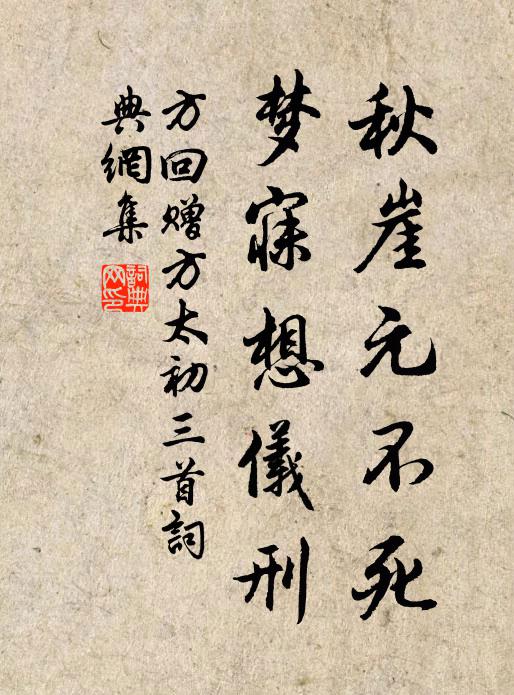 秋崖元不死
梦寐想儀刑
方回赠方太初三首詞
典網集
詞典網印